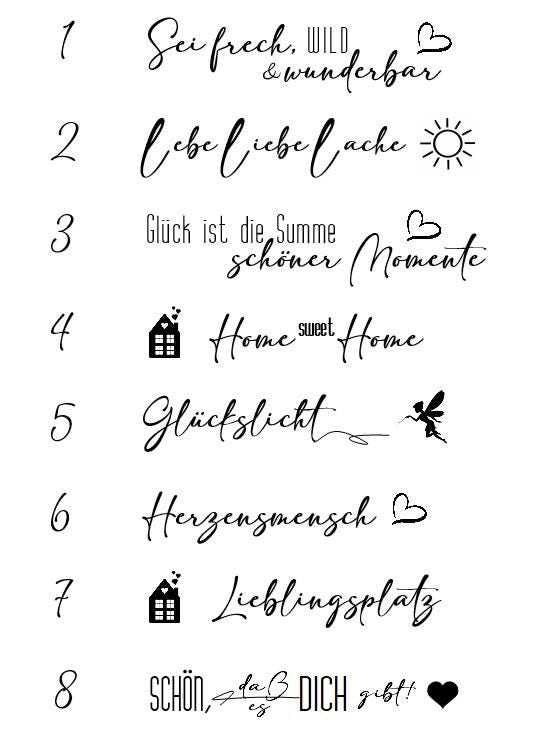 1 Sei frech, WILD
& wunderbar
2 Lebe Liebe Lache
3 Glück ist die Summe
schöner Momente
4 Home sweet Home
5 Glückslicht
6 Herzensmensch
7 Lieblingsplatz
8 SCHÖN, daß es DICH gibt!